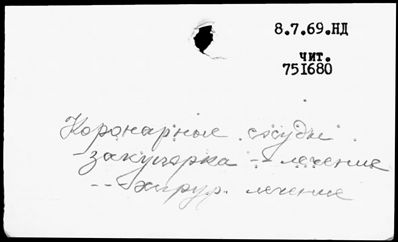 8.7.69.НД
чит.
751680
Коронарные сосуды
-закупорка -- лечение
-- хирур. лечение